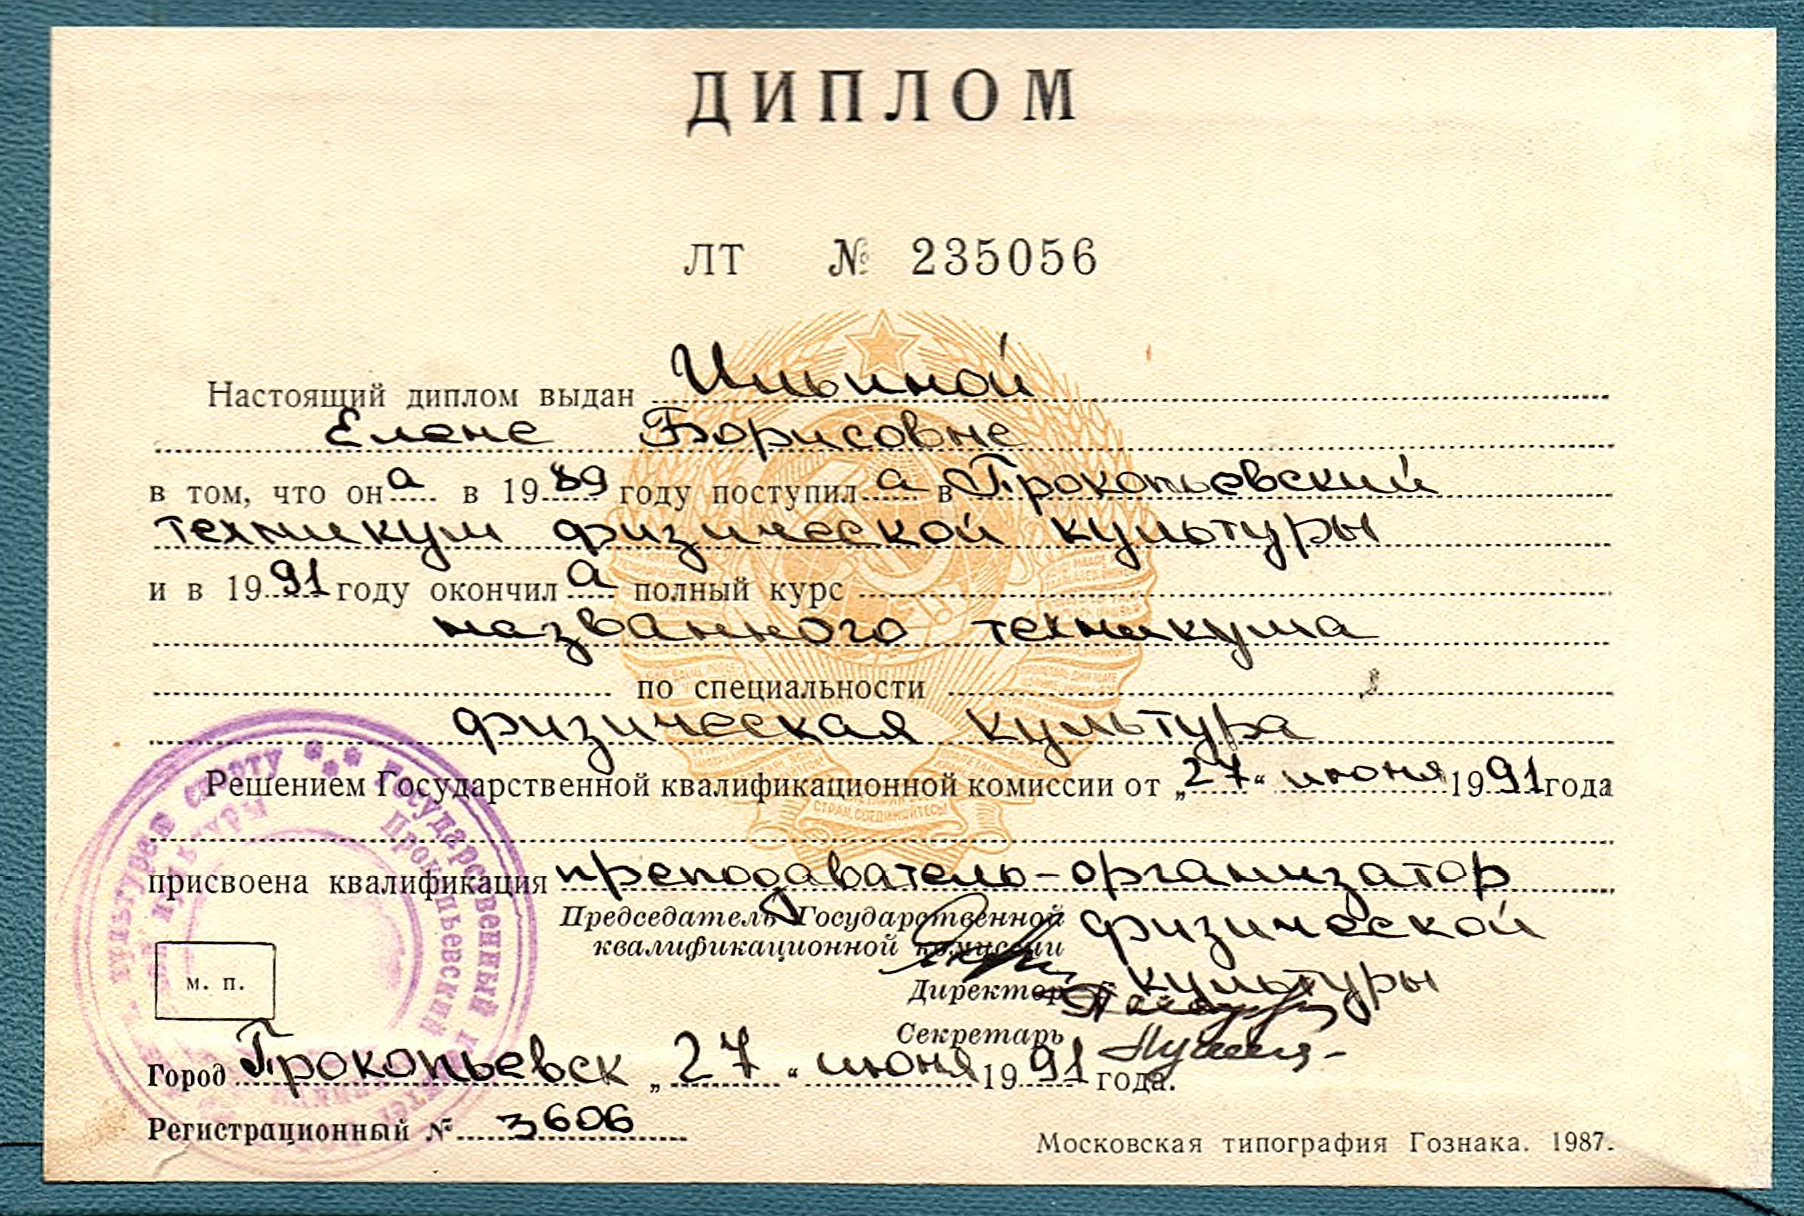 ДИПЛОМ
ЛТ № 235056
Настоящий диплом выдан Ильиной
Елене Борисовне
в том, что она в 1989 году поступила в Прокопьевский
техникум физической культуры
и в 1991 году окончила полный курс
названного техникума
по специальности
физическая культура
Решением Государственной квалификационной комиссии от „27“ июня 1991 года
присвоена квалификация преподаватель-организатор
Председатель Государственной физической
квалификационной комиссии
культуры
Директор
Секретарь
м. п.
Город Прокопьевск „27“ июня 1991 года.
Регистрационный № 3606
Московская типография Гознака. 1987.
Государственный
Прокопьевский